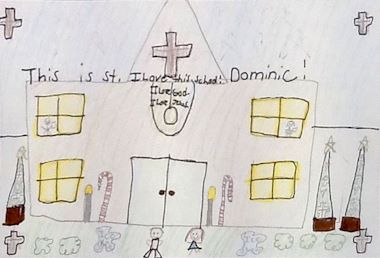 This is st. I Love this school! Dominic!
I Love God.
I Love Jesus.